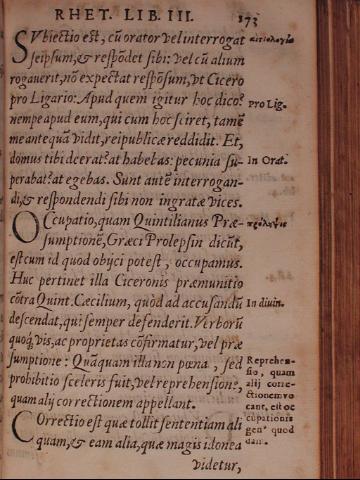 RHET. LIB. III. 173
SVbiectio est, cũ orator vel interrogat
seipsum, & respõdet sibi: vel cũ alium
rogauerit, nõ expectat respõsum, vt Cicero
pro Ligario: Apud quem igitur hoc dico?
nempe apud eum, qui cum hoc sciret, tamẽ
me antequã vidit, reipublicæ reddidit. Et,
domus tibi deerat? at habebas: pecunia su-
perabat? at egebas. Sunt autẽ interrogan-
di, & respondendi sibi non ingratæ vices.
OCcupatio, quam Quintilianus Præ-
sumptionẽ, Græci Prolepsin dicũt,
est cum id quod obijci potest, occupamus.
Huc pertinet illa Ciceronis præmunitio
cõtra Quint. Cæcilium, quòd ad accusandũ
descendat, qui semper defenderit. Verborũ
quoq; vis, ac proprietas cõfirmatur, vel præ
sumptione: Quãquam illa non pœna, sed
prohibitio sceleris fuit, vel reprehensione,
quam alij correctionem appellant.
COrrectio est quæ tollit sententiam ali
quam, & eam alia, quæ magis idonea
videtur,
αἰτιολογία
pro Lig.
In Orat.
πρόληψις
In diuin.
Reprehen-
sio, quam
alij corre-
ctionem vo
cant, est oc
cupationis
gen⁹ quod
dam.